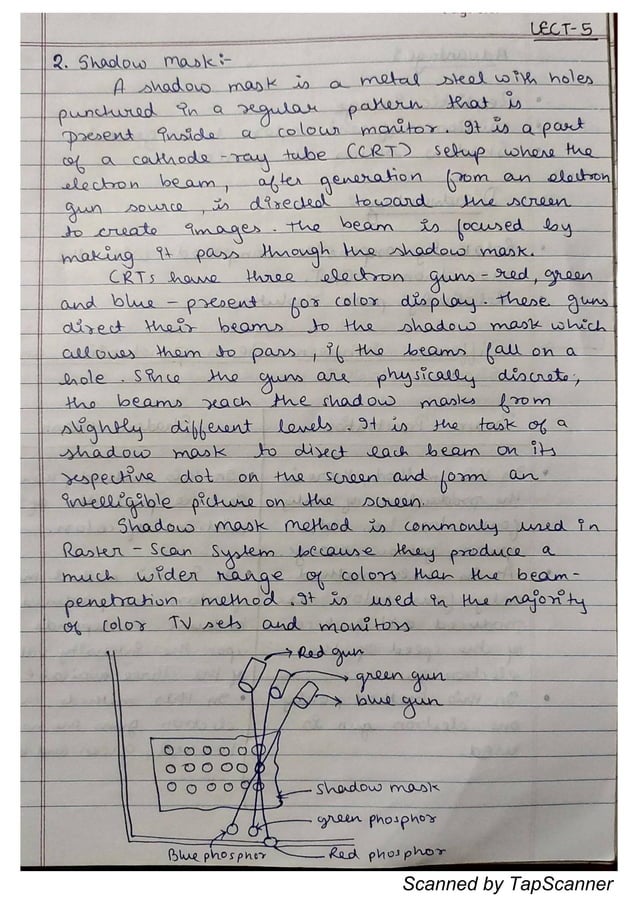 LECT-5
2. Shadow mask:-
A shadow mask is a metal steel with holes
punctured in a regular pattern that is
present inside a colour monitor. It is a part
of a cathode-ray tube (CRT) setup where the
electron beam, after generation from an electron
gun source, is directed toward the screen
to create images. The beam is focused by
making it pass through the shadow mask.
CRTs have three electron guns - red, green
and blue - present for color display. These guns
direct their beams to the shadow mask which
allows them to pass, if the beams fall on a
hole. Since the guns are physically discrete,
the beams reach the shadow masks from
slightly different levels. It is the task of a
shadow mask to direct each beam on its
respective dot on the screen and form an
intelligible picture on the screen.
Shadow mask method is commonly used in
Raster-Scan System because they produce a
much wider range of colors than the beam-
penetration method. It is used in the majority
of color TV sets and monitors
Red gun
green gun
blue gun
shadow mask
green phosphor
Blue phosphor
Red phosphor
Scanned by TapScanner